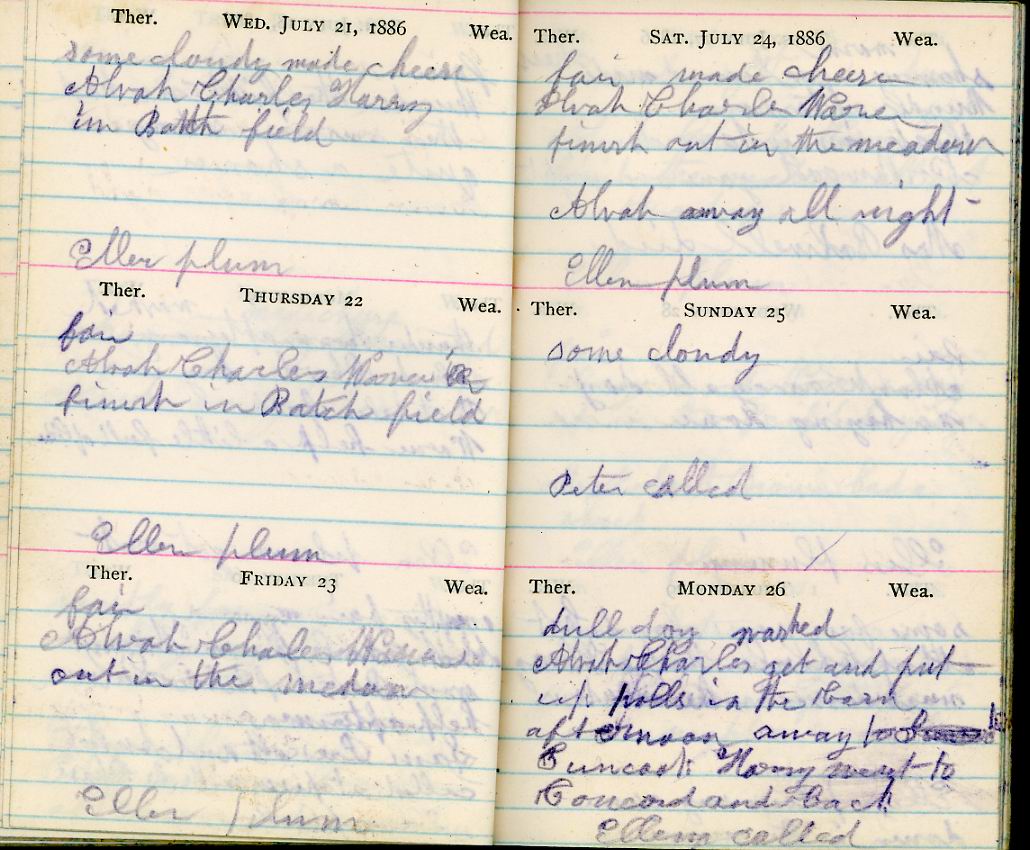 Ther. WED. JULY 21, 1886 Wea.
some cloudy made cheese
Alvah Charley Harry
in Batch field
Ellen plum
Ther. THURSDAY 22 Wea.
fair
Alvah Charles
finish in Batch field
Ellen plum
Ther. FRIDAY 23 Wea.
fair
Alvah Charles
out in the medow
Ellen plum
Ther. SAT. JULY 24, 1886 Wea.
fair made cheese
Alvah Charles
finish out in the meadow
Alvah away all night
Ellen plum
Ther. SUNDAY 25 Wea.
some cloudy
Peter called
Ther. MONDAY 26 Wea.
dull day washed
Alvah Charles get and put
up polls in the barn
afternoon away
Suncook Harry went to
Concord and back
Ellen called